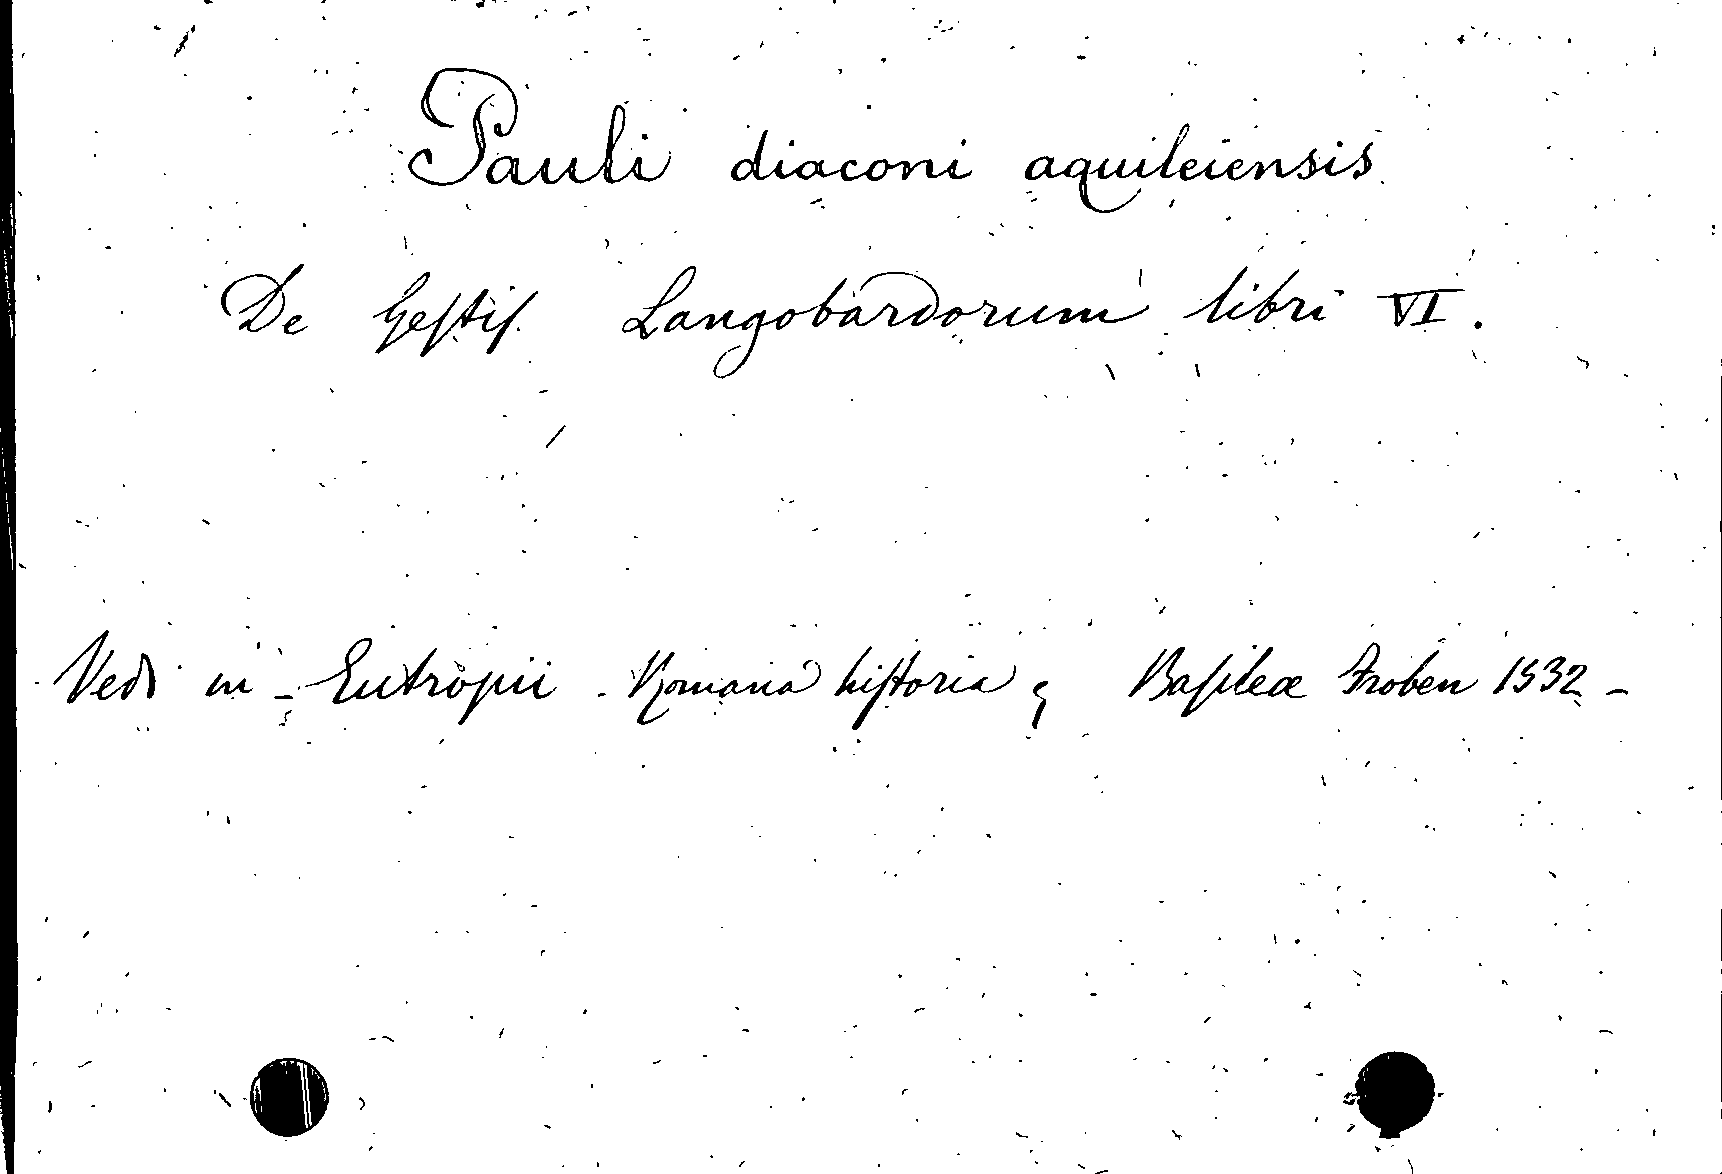 Pauli diaconi aquileiensis
De Gestis Langobardorum libri VI.
Vedi in - Eutropii - Romana historia ; Basileæ Froben 1532 -